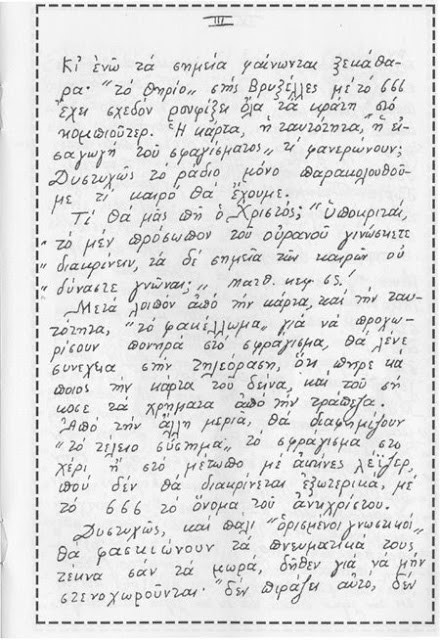 III
Κι' ἐνῶ τά σημεῖα φαίνωνται ξεκάθα-
ρα· "τό θηρίο" στίς Βρυξέλλες μέ τό 666
ἔχει σχεδόν ρουφίξει ὅλα τά κράτη στό
κομπιοῦτερ. Ἡ κάρτα, ἡ ταυτότητα, "ἡ εἰ-
σαγωγή τοῦ σφαγίσματος" τί φανερώνουν;
Δυστυχῶς τό ράδιο μόνο παρακολουθοῦ-
με τί καιρό θά ἔχουμε.
Τί θά μᾶς πῆ ὁ Χριστός; "Ὑποκριταί,
"τό μέν πρόσωπον τοῦ οὐρανοῦ γινώσκετε
"διακρίνειν, τά δέ σημεῖα τῶν καιρῶν οὐ
"δύνασθε γνῶναι;" Ματθ. κεφ.
Μετά λοιπόν ἀπό τήν κάρτα, καί τήν ταυ-
τότητα, "τό φακέλλωμα" γιά νά προχω-
ρίσουν πονηρά στό σφράγισμα, θά λένε
συνεχεια στήν τηλεόραση, ὅτι πῆρε κά
ποιος τήν κάρτα τοῦ δείνα, καί τοῦ σή
κοσε τά χρήματα ἀπό τήν τράπεζα.
Ἀπό τήν ἄλλη μεριά, θά διαφημίζουν
"τό τέλειο σύστημα" τό σφράγισμα στο
χέρι ἤ στό μέτωπο μέ ἀκτίνες λέϊζερ,
πού δέν θά διακρίνεται ἐξωτερικά, μέ
τό 666 τό ὄνομα τοῦ ἀντιχρίστου.
Δυστυχῶς, καί πάλι "ὁρισμένοι γνωστικοί"
θά φασκιώνουν τά πνευματικά τους
τέκνα σάν τά μωρά, δῆθεν γιά νά μήν
στενοχωροῦνται. "δέν πιράζει αὐτό, δέν